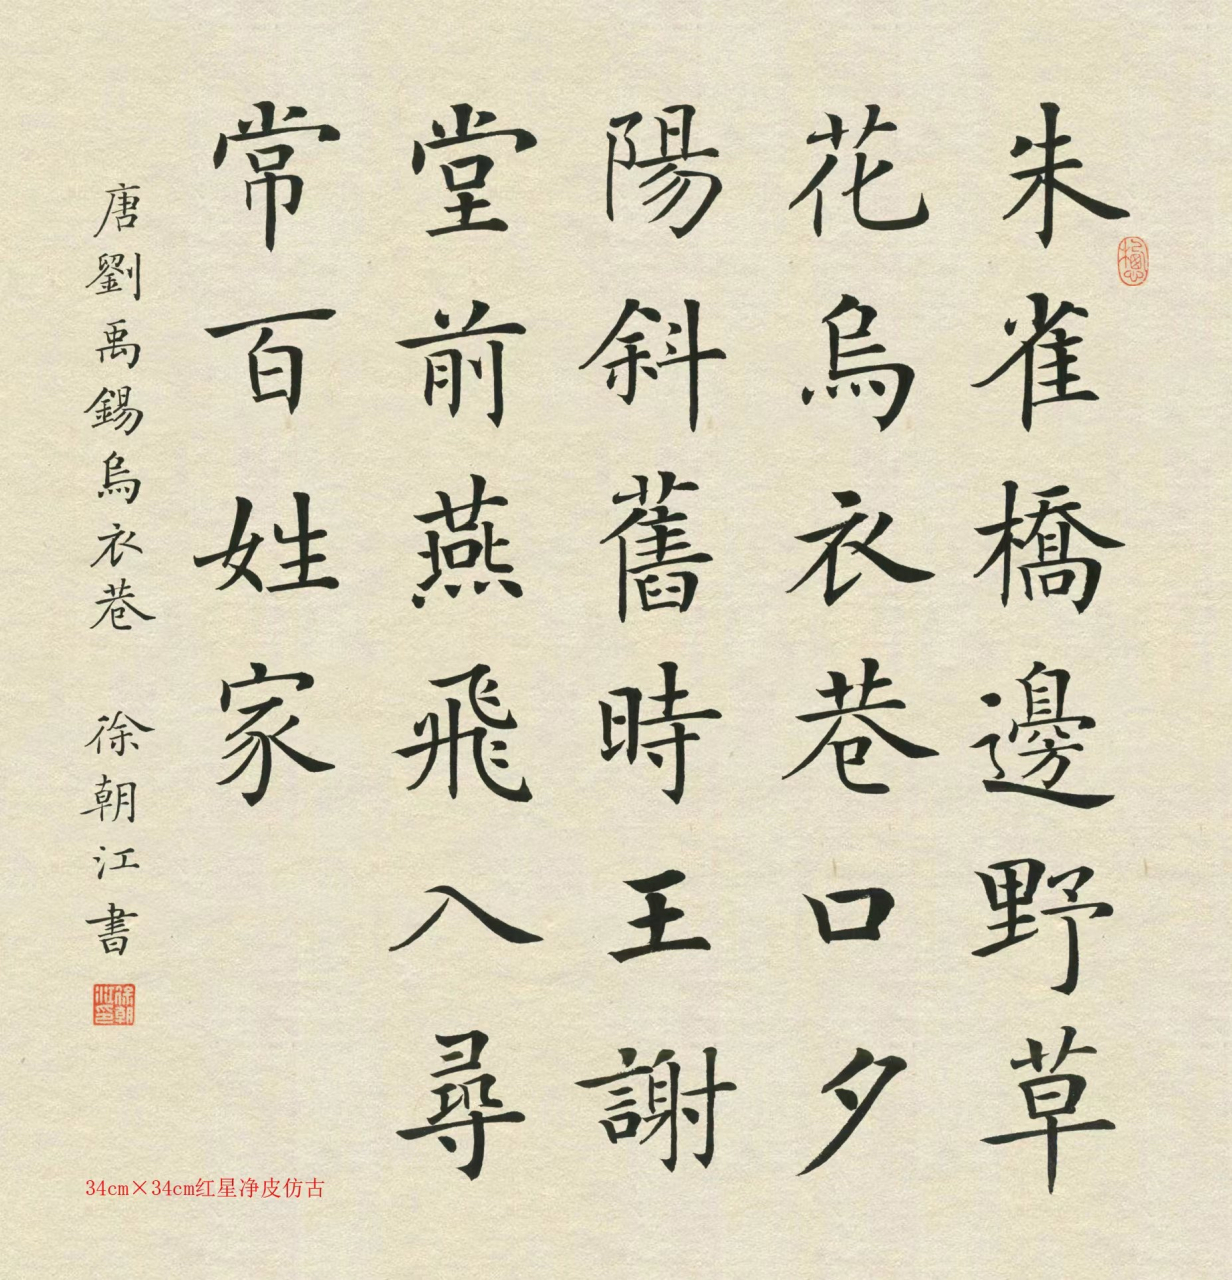 朱雀橋邊野草
花烏衣巷口夕
陽斜舊時王謝
堂前燕飛入尋
常百姓家
唐劉禹錫烏衣巷 徐朝江書
徐朝江印
34cm×34cm红星净皮仿古